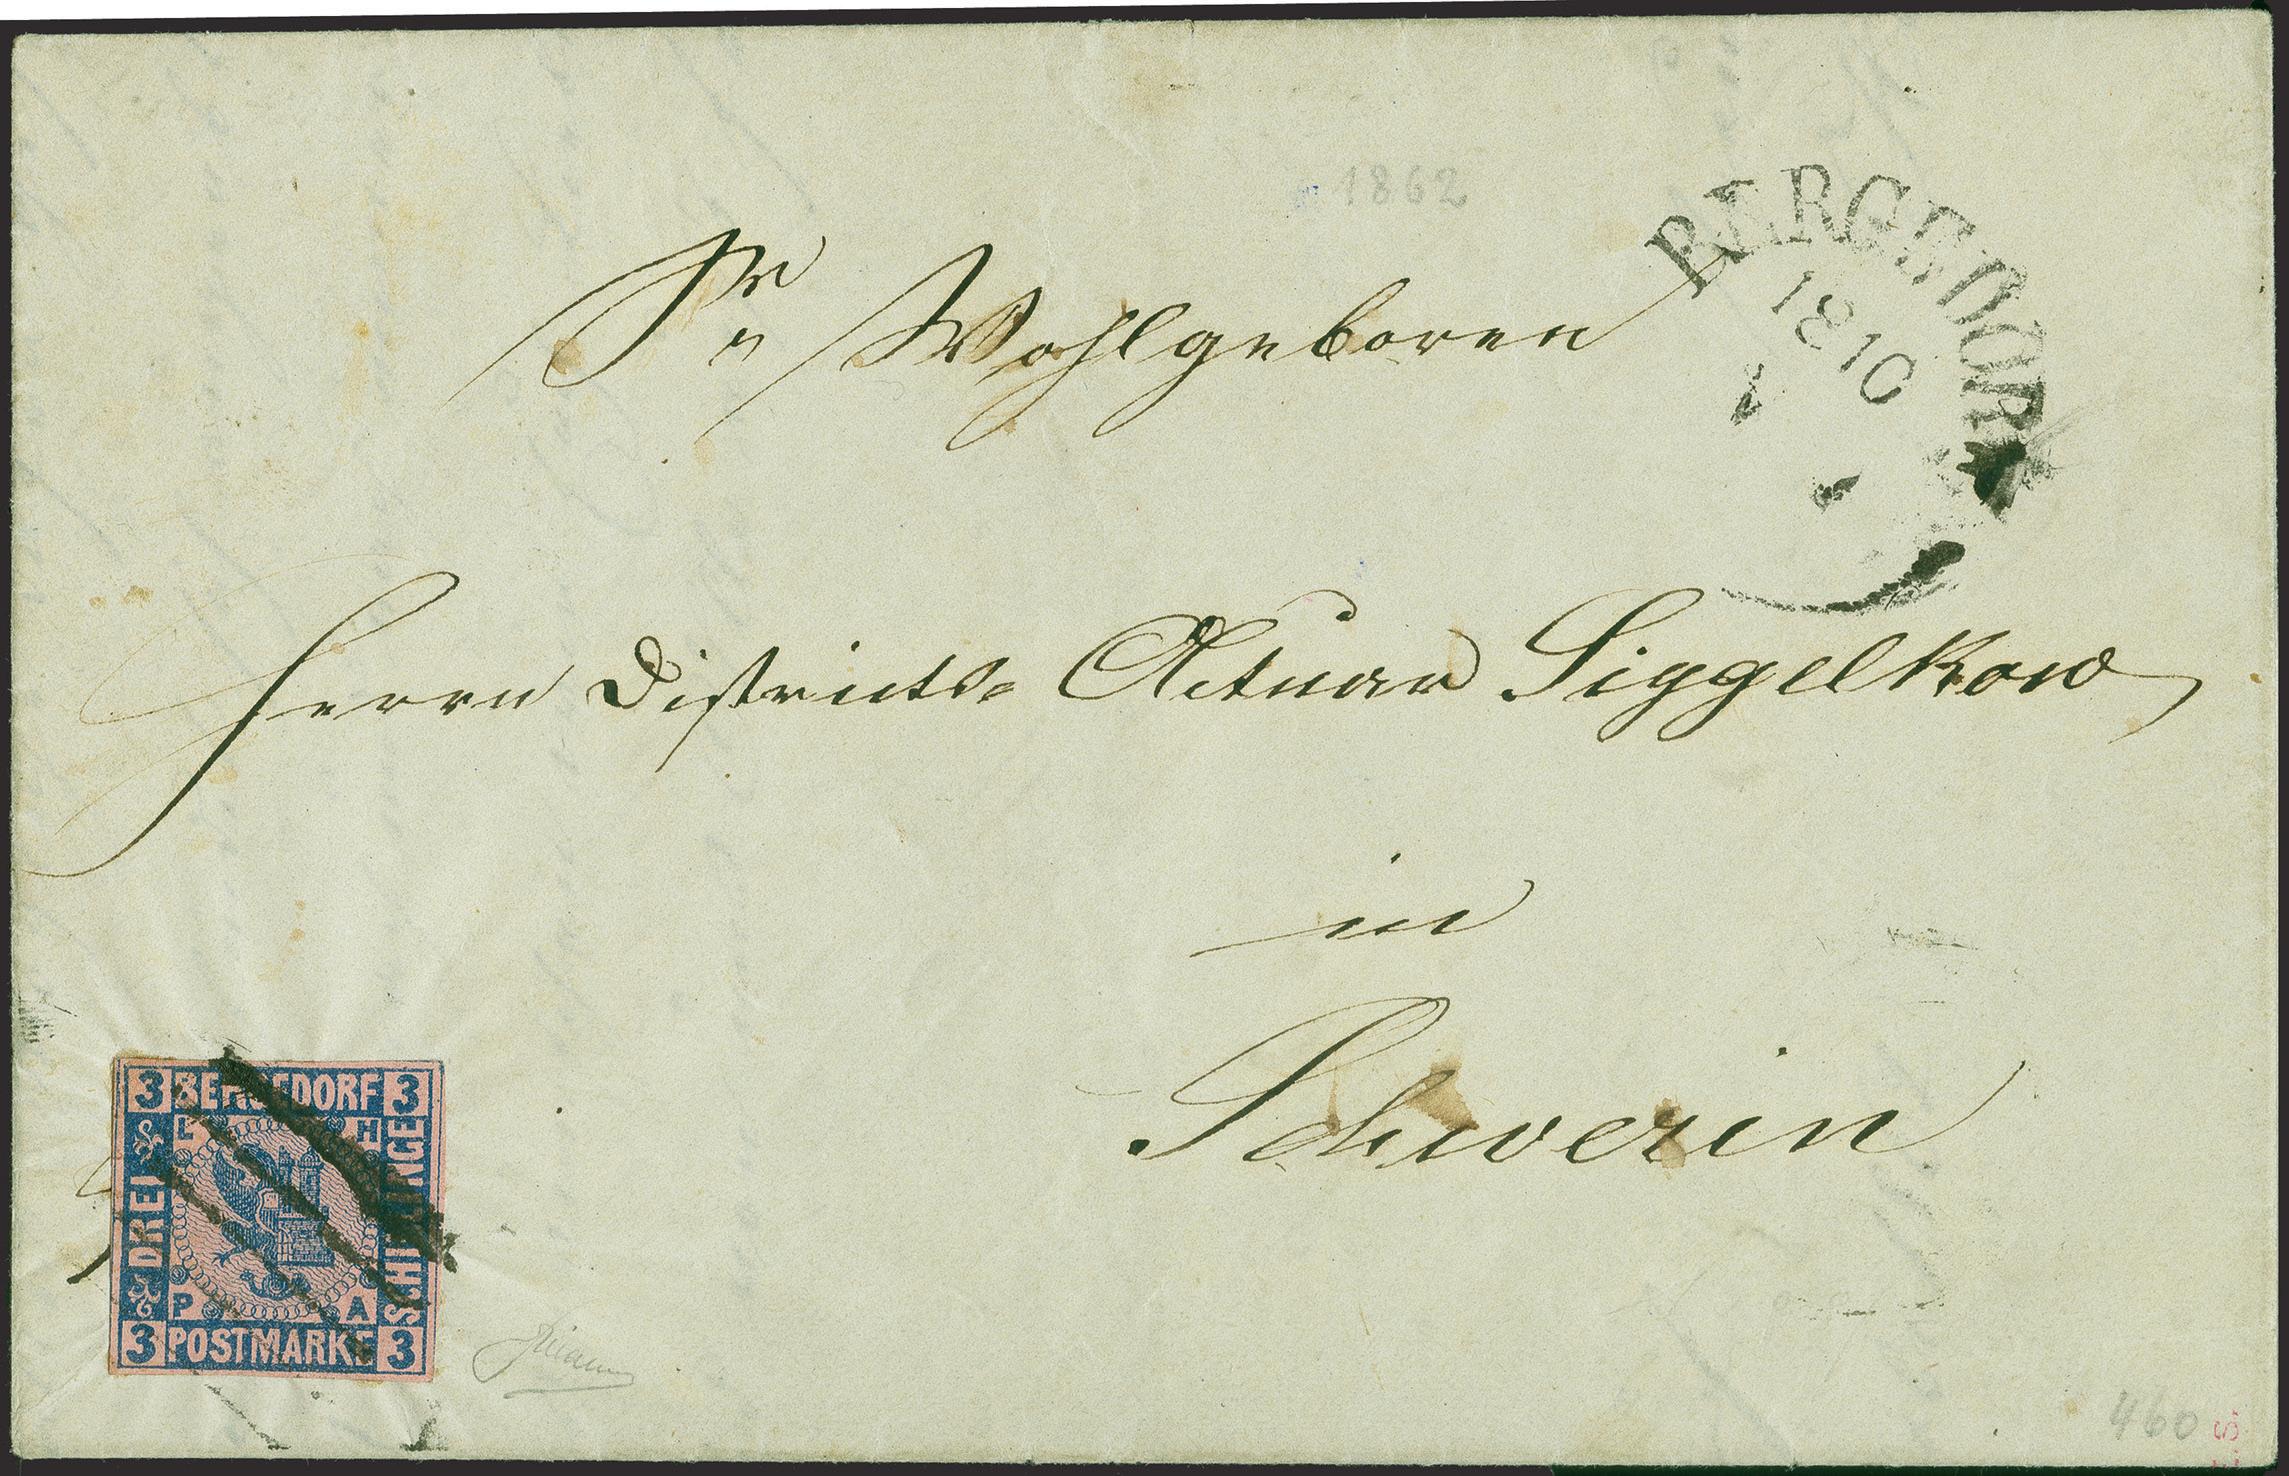 1862
BERGEDORF
18 10
Sr Wohlgeboren
Herrn Districts-Actuar Siggelkow
in
Schwerin
3 BERGEDORF 3
L H
DREI
SCHILLINGE
P A
3 POSTMARKE 3
460